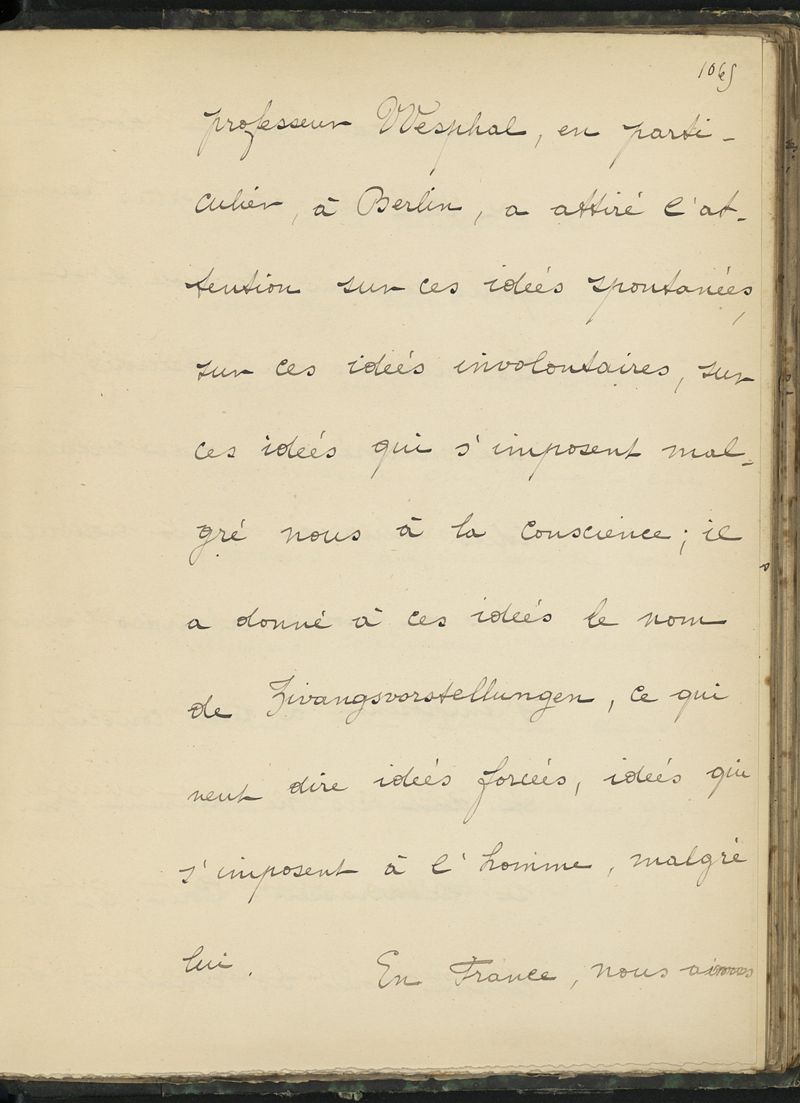 1065
professeur Wesphal, en parti-
culier, à Berlin, a attiré l'at-
tention sur ces idées spontanées,
sur ces idées involontaires, sur
ces idées qui s'imposent mal-
gré nous à la conscience; il
a donné à ces idées le nom
de Zwangsvorstellungen, ce qui
veut dire idées forcées, idées qui
s'imposent à l'homme, malgré
lui. En France, nous